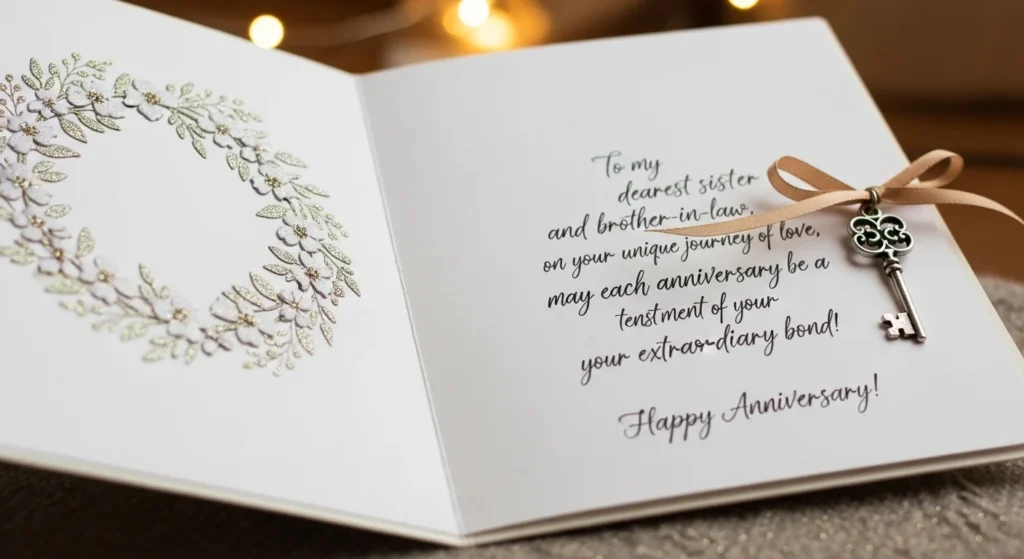 To my
dearest sister
and brother-in-law,
on your unique journey of love,
may each anniversary be a
tenstment of your
your extraor-diary bond!
Happy Anniversary!